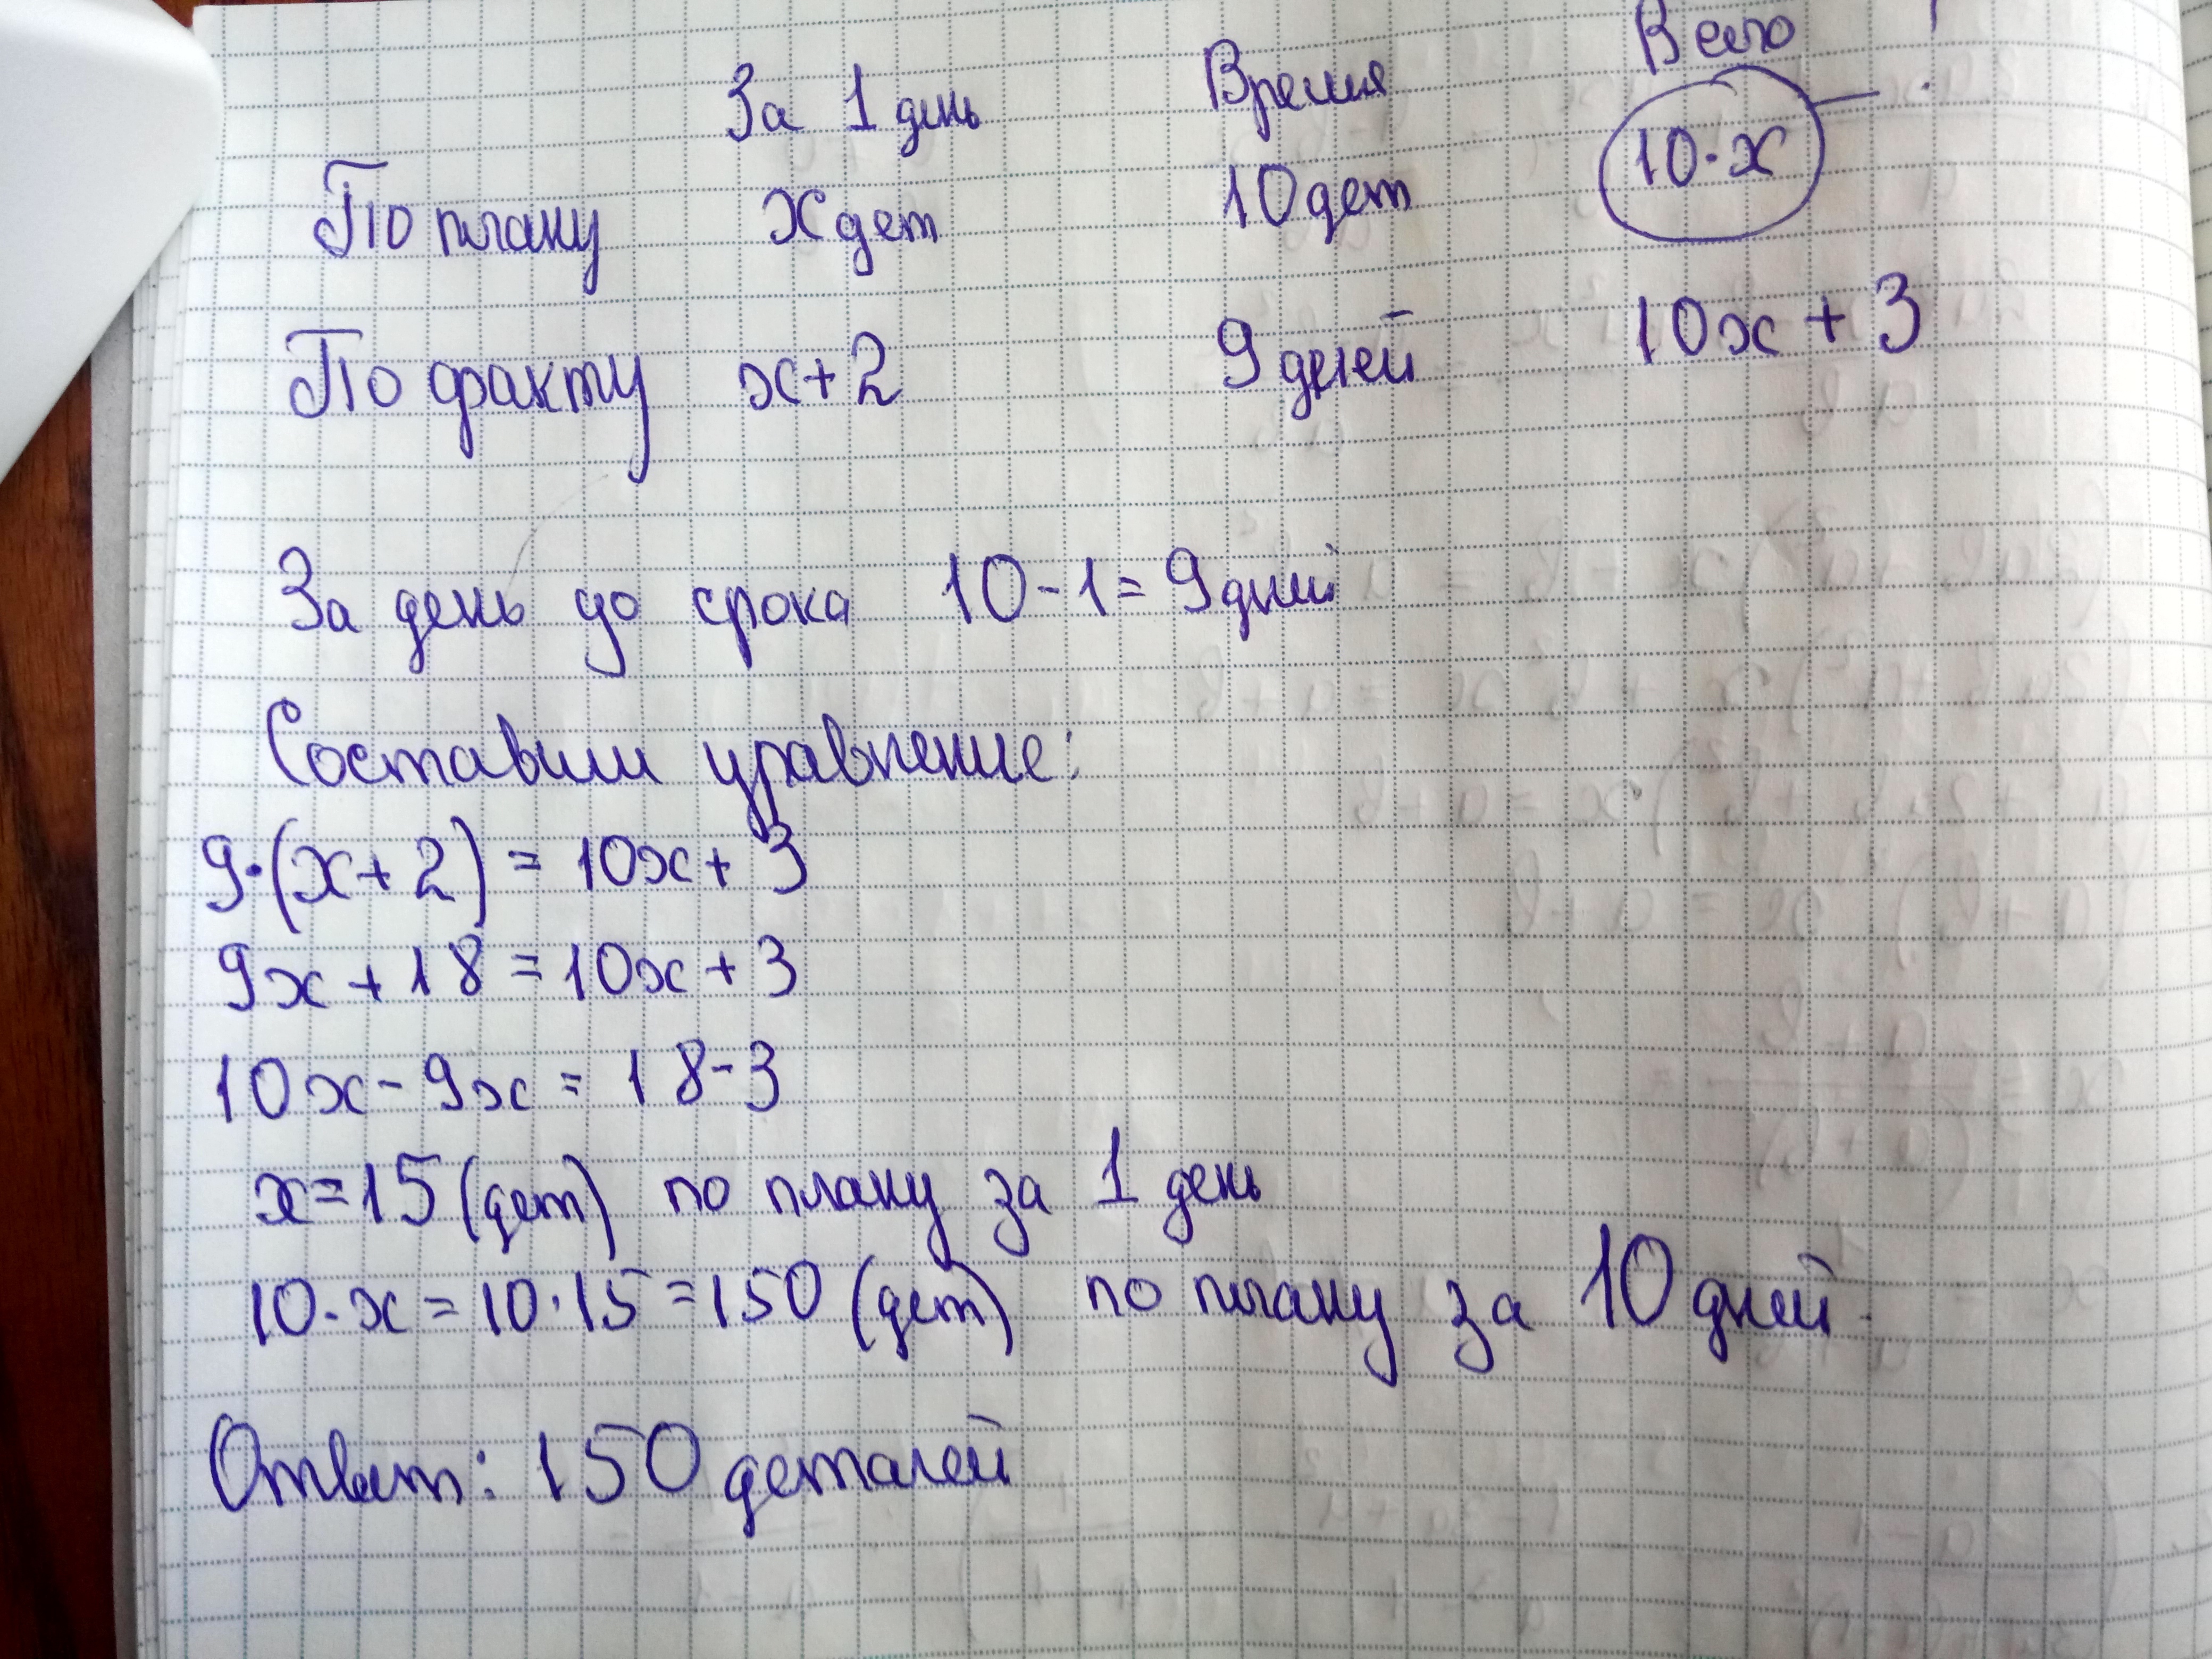 За 1 день Время Всего
По плану х дет 10 дет 10·х — ?
По факту х+2 9 дней 10х + 3
За день до срока 10-1=9 дней
Составим уравнение:
9·(х+2) = 10х+3
9х+18=10х+3
10х-9х=18-3
х=15 (дет) по плану за 1 день
10·х=10·15=150 (дет) по плану за 10 дней.
Ответ: 150 деталей